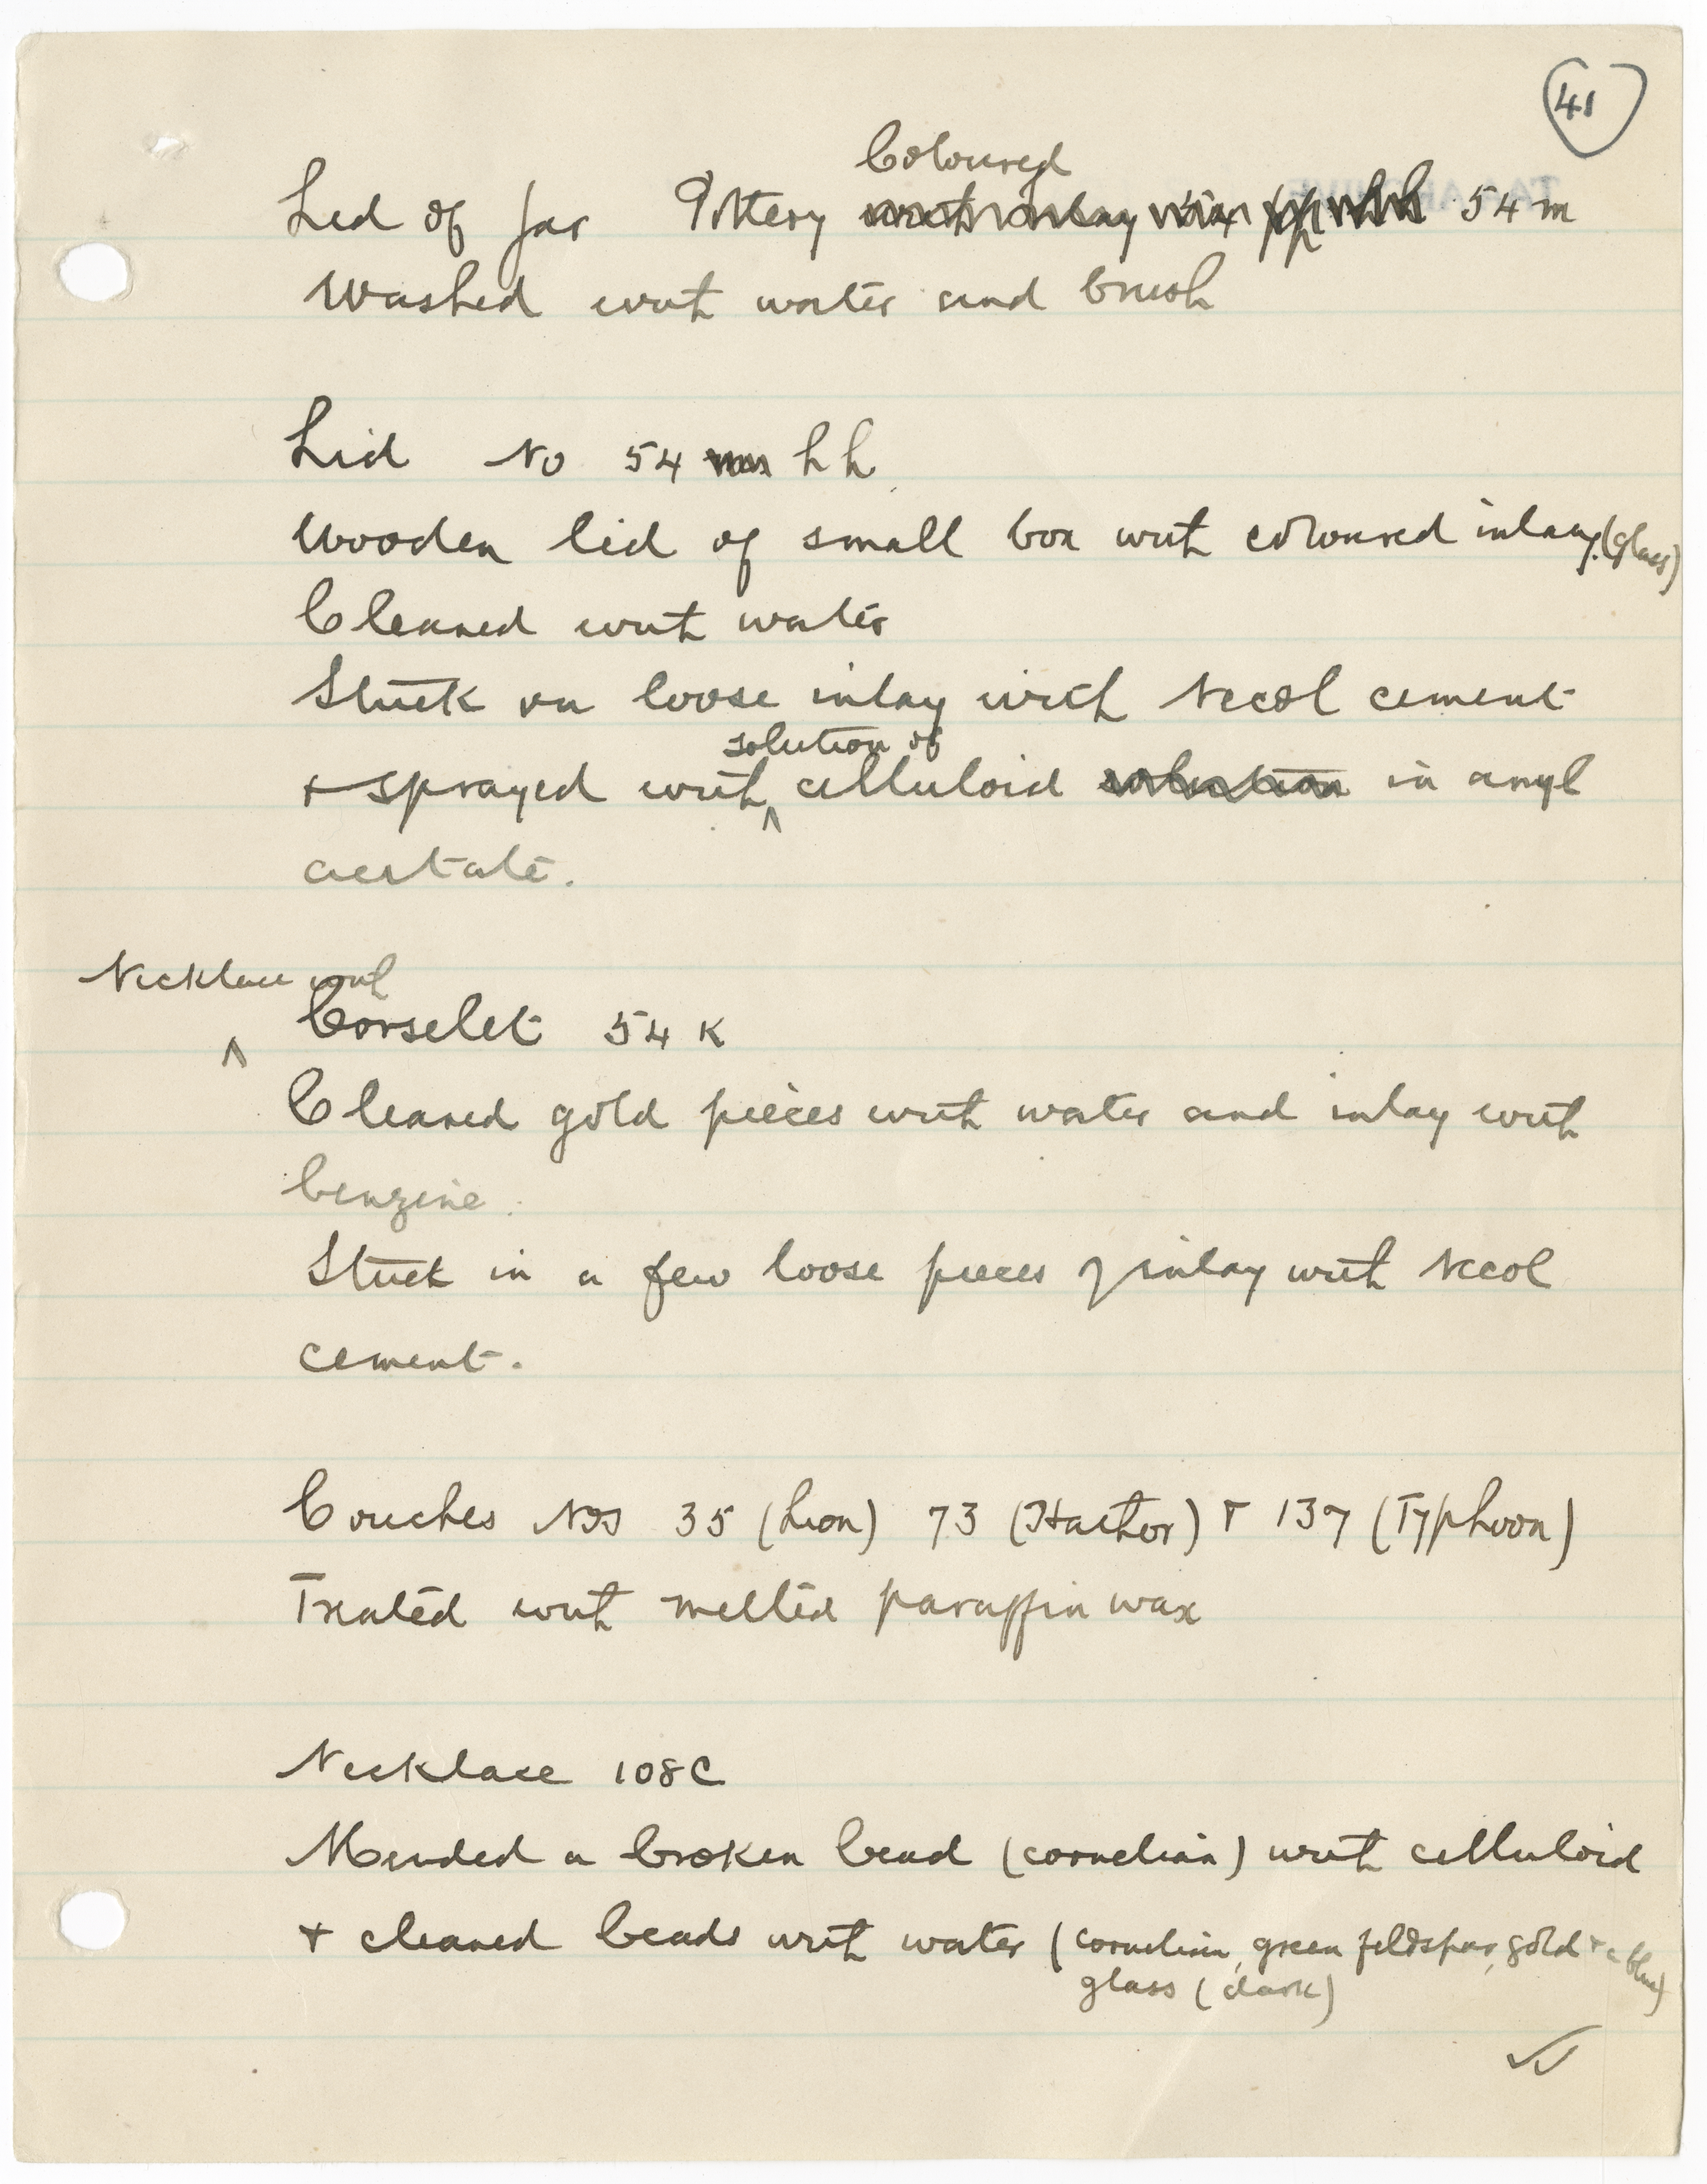 41
Coloured
Lid of Jar Pottery 54 m
Washed with water and brush
Lid No 54 hh
Wooden lid of small box with coloured inlay. (glass)
Cleaned with water
Stuck on loose inlay with Necol cement
solution of
& sprayed with celluloid solution in amyl
acetate.
Necklace with
Corselet 54 K
Cleaned gold pieces with water and inlay with
benzine.
Stuck in a few loose pieces of inlay with Necol
cement.
Couches Nos 35 (Lion) 73 (Hathor) & 137 (Typhoon)
Treated with melted paraffin wax
Necklace 108C
Mended a broken bead (cornelian) with celluloid
& cleaned beads with water (cornelian, green feldspar, gold & blue)
glass (dark)